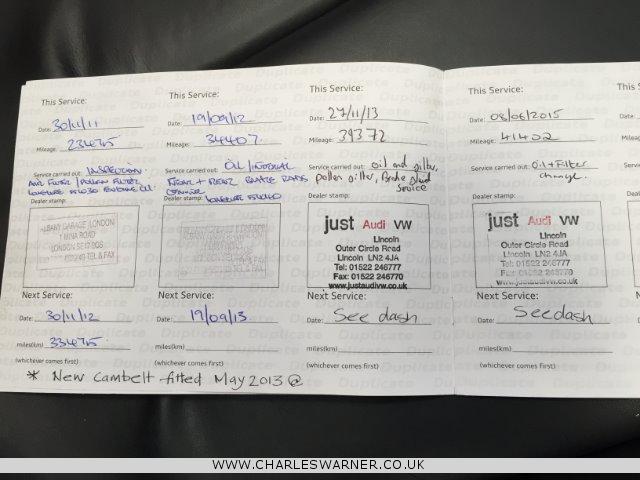 This Service:
Date: 30/11/11
Mileage: 23475
Service carried out: INSPECTION
AIR FILTER / POLLEN FILTER
LONGLIFE 5W30 ENGINE OIL
Dealer stamp:
ALBANY GARAGE LONDON
1 MINA ROAD
LONDON SE17 2QS
TEL & FAX
Next Service:
Date: 30/11/12
miles(km) 33475
(whichever comes first)
This Service:
Date: 19/09/12
Mileage: 34407
Service carried out: OIL / INTERVAL
FRONT + REAR BRAKE PADS
Dealer stamp: LONGLIFE 5W30
Next Service:
Date: 19/09/13
miles(km)
(whichever comes first)
This Service:
Date: 27/11/13
Mileage: 39372
Service carried out: oil and filter,
pollen filter, Brake fluid
Service
Dealer stamp:
just Audi VW
Lincoln
Outer Circle Road
Lincoln LN2 4JA
Tel: 01522 246777
Fax: 01522 246770
www.justaudivw.co.uk
Next Service:
Date: See dash
miles(km)
(whichever comes first)
This Service:
Date: 08/06/2015
Mileage: 41402
Service carried out: Oil + Filter
change.
Dealer stamp:
just Audi VW
Lincoln
Outer Circle Road
Lincoln LN2 4JA
Tel: 01522 246777
Fax: 01522 246770
www.justaudivw.co.uk
Next Service:
Date: See dash
miles(km)
(whichever comes first)
* New Cambelt fitted May 2013 @
WWW.CHARLESWARNER.CO.UK